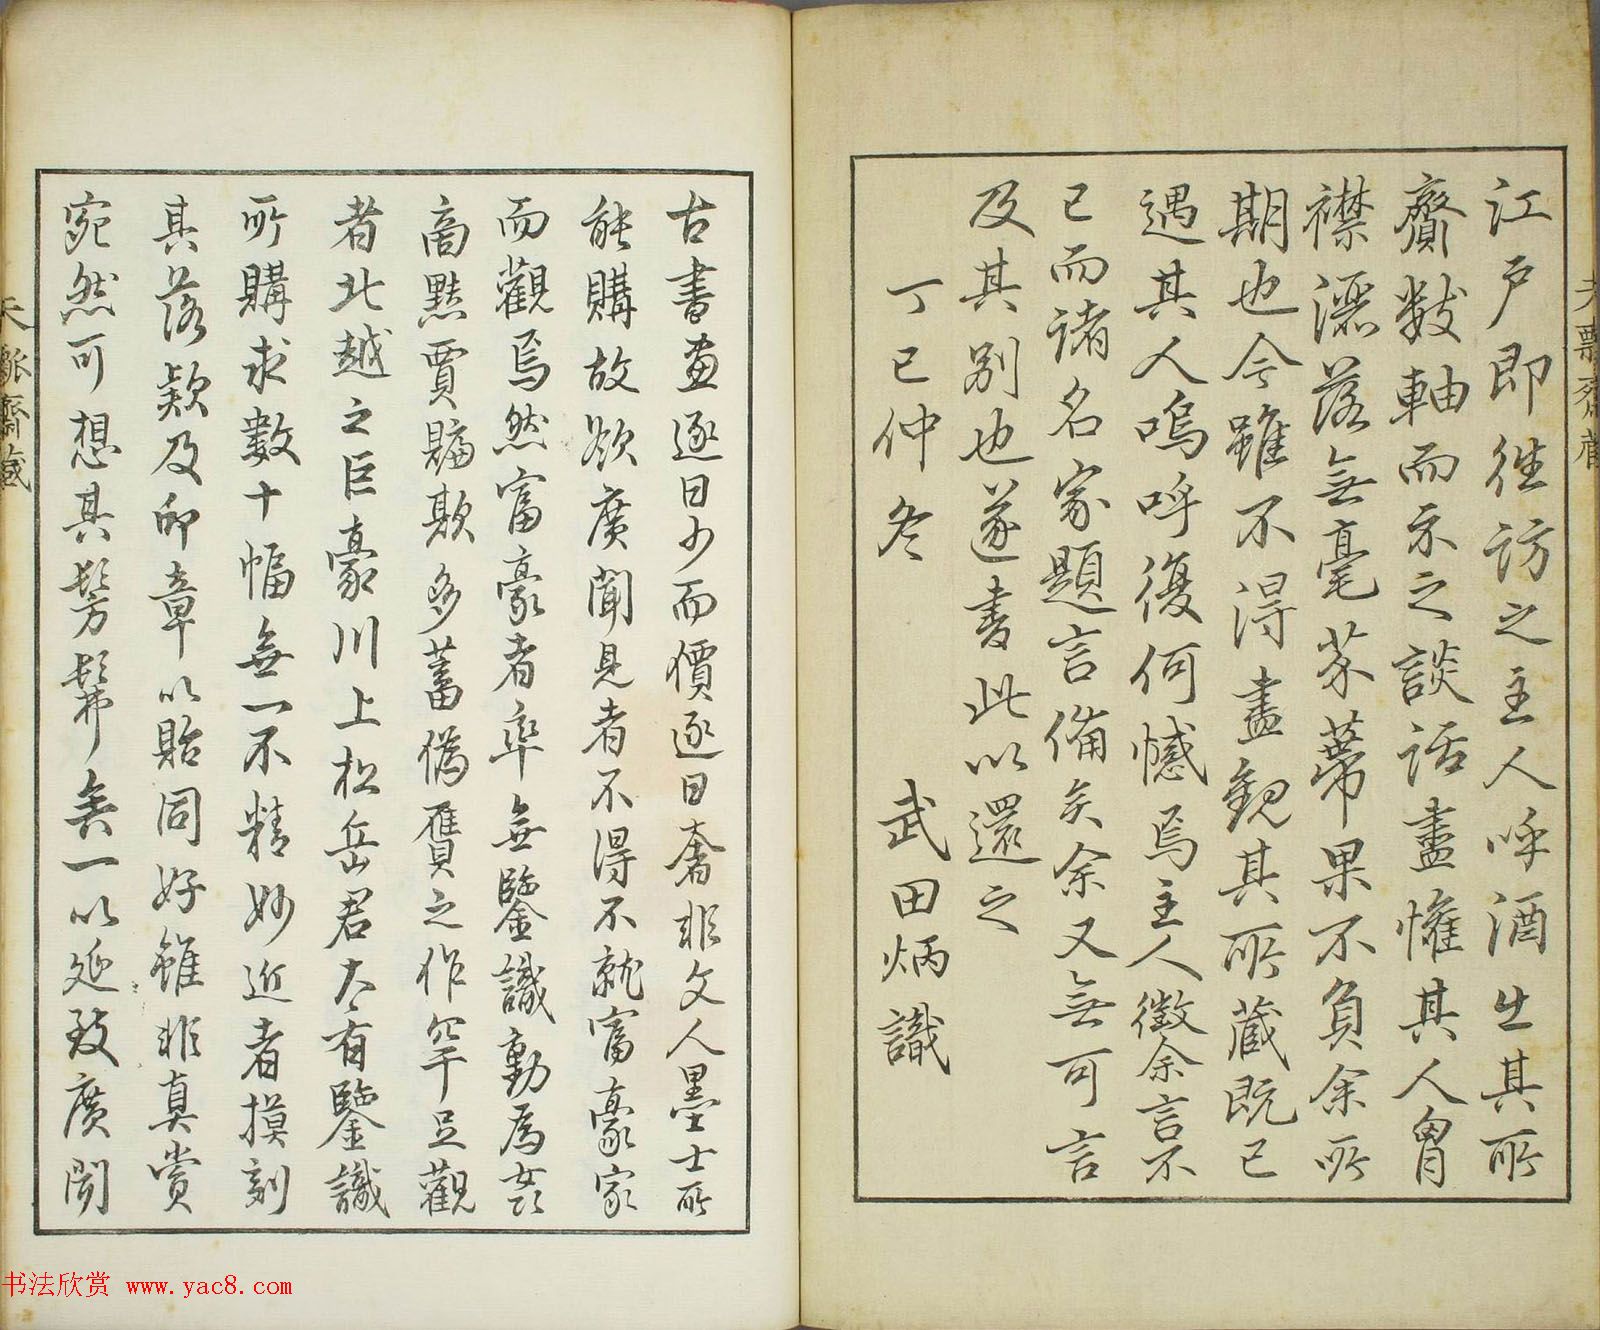 江戶即徃訪之主人呼酒出其所
齎數軸而示之談話盡懽其人胷
襟灑落無毫芥蔕果不負余所
期也今雖不得盡觀其所藏既已
遇其人嗚呼復何憾焉主人徵余言不
已而諸名家題言備矣余又無可言
及其別也遂書此以還之
丁巳仲冬 武田炳識
古書畫逐日少而價逐日奢非文人墨士所
能購故欲廣聞見者不得不就富豪家
而觀焉然富豪者率無鑒識動爲
商黠賈賺欺多蓄僞贋之作罕足觀
者北越之巨豪川上松岳君大有鑒識
所購求數十幅無一不精妙近者摸刻
其落款及印章以貽同好雖非真賞
宛然可想其髣髴矣一以延致廣聞
天瓢齋藏
书法欣赏 www.yac8.com